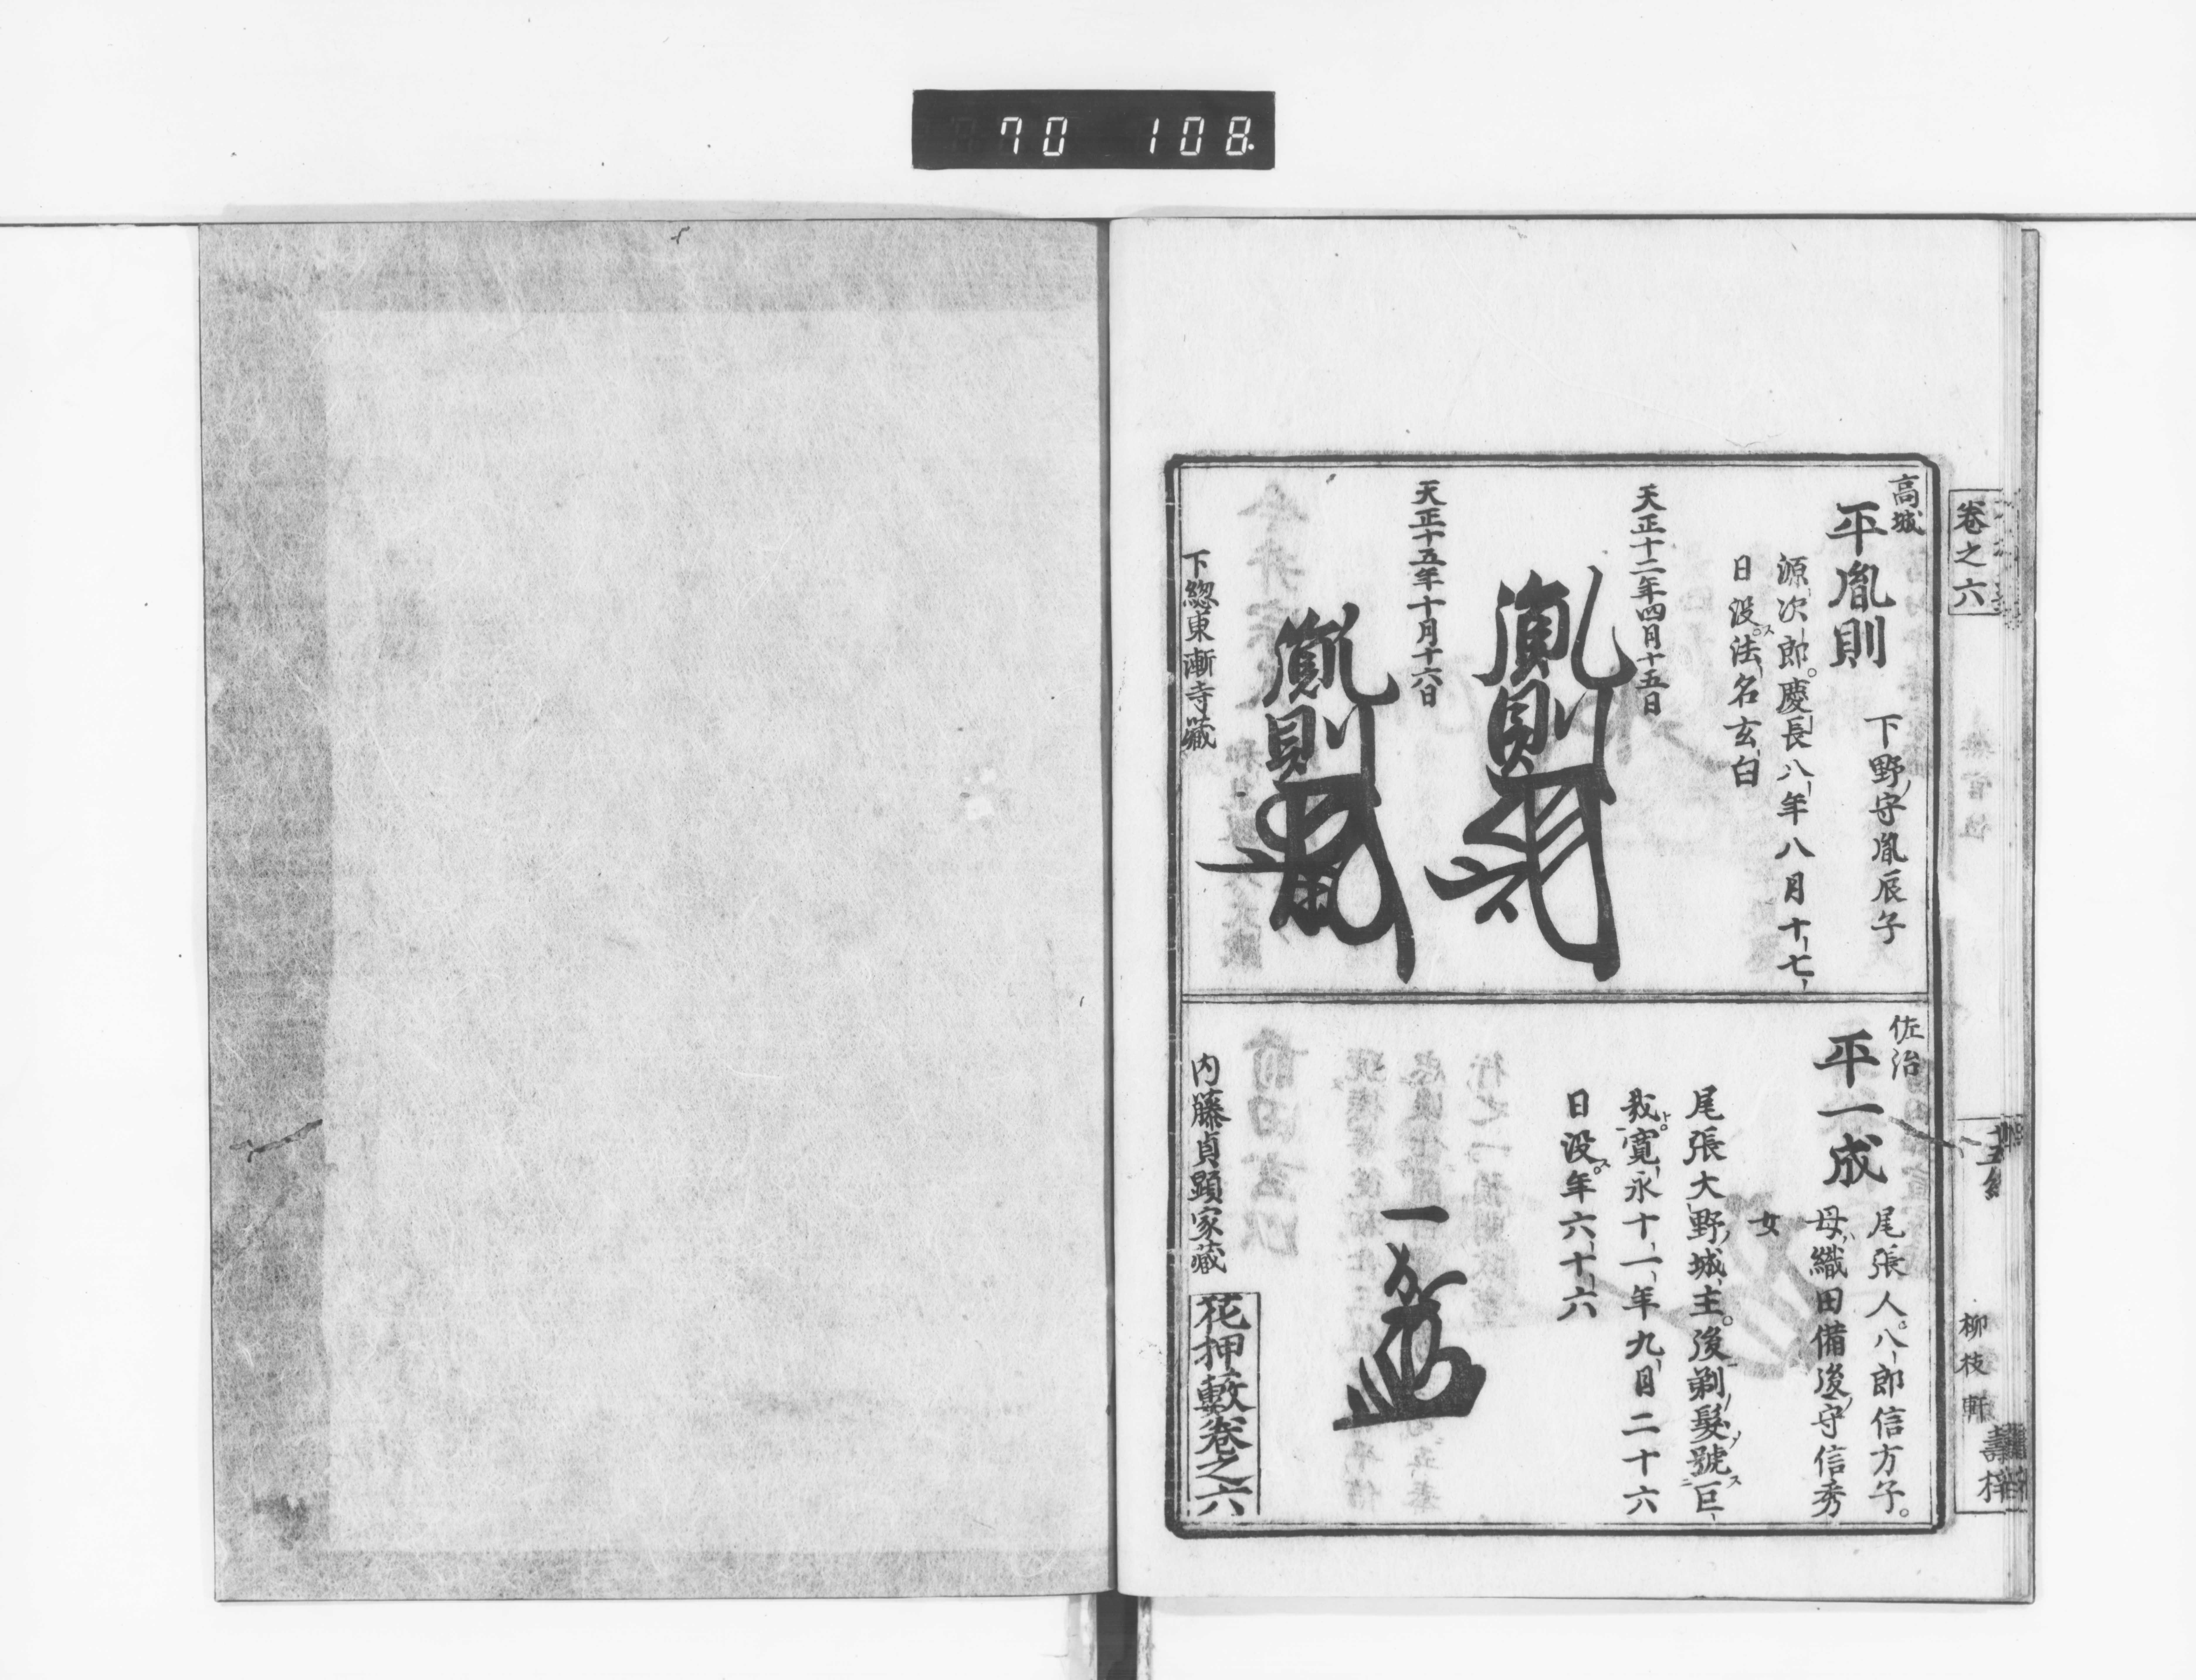 70 108
卷之六
高城
平胤則
下野守胤辰子
源次郎。慶長八年八月十七
日没ス。法名玄白
天正十二年四月十五日
胤則
天正十五年十月十六日
胤則
下總東漸寺藏
佐治
平一成
尾張人。八郎信方子。
母ハ織田備後ノ守信秀ノ
女
尾張大野ノ城主。後剃髮ノ號ス巨
哉ト。寛永十一年九月二十六
日没ス。年六十六
一
内藤貞顕家藏
花押藪卷之六
柳枝軒